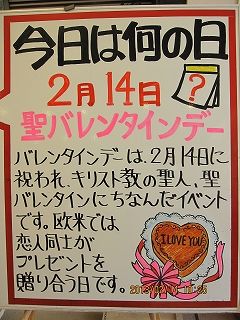 今日は何の日
?
2月14日
聖バレンタインデー
バレンタインデーは、2月14日に
祝われ、キリスト教の聖人、聖
バレンタインにちなんだイベント
です。欧米では
恋人同士が
プレゼントを
贈り合う日です。
I LOVE YOU